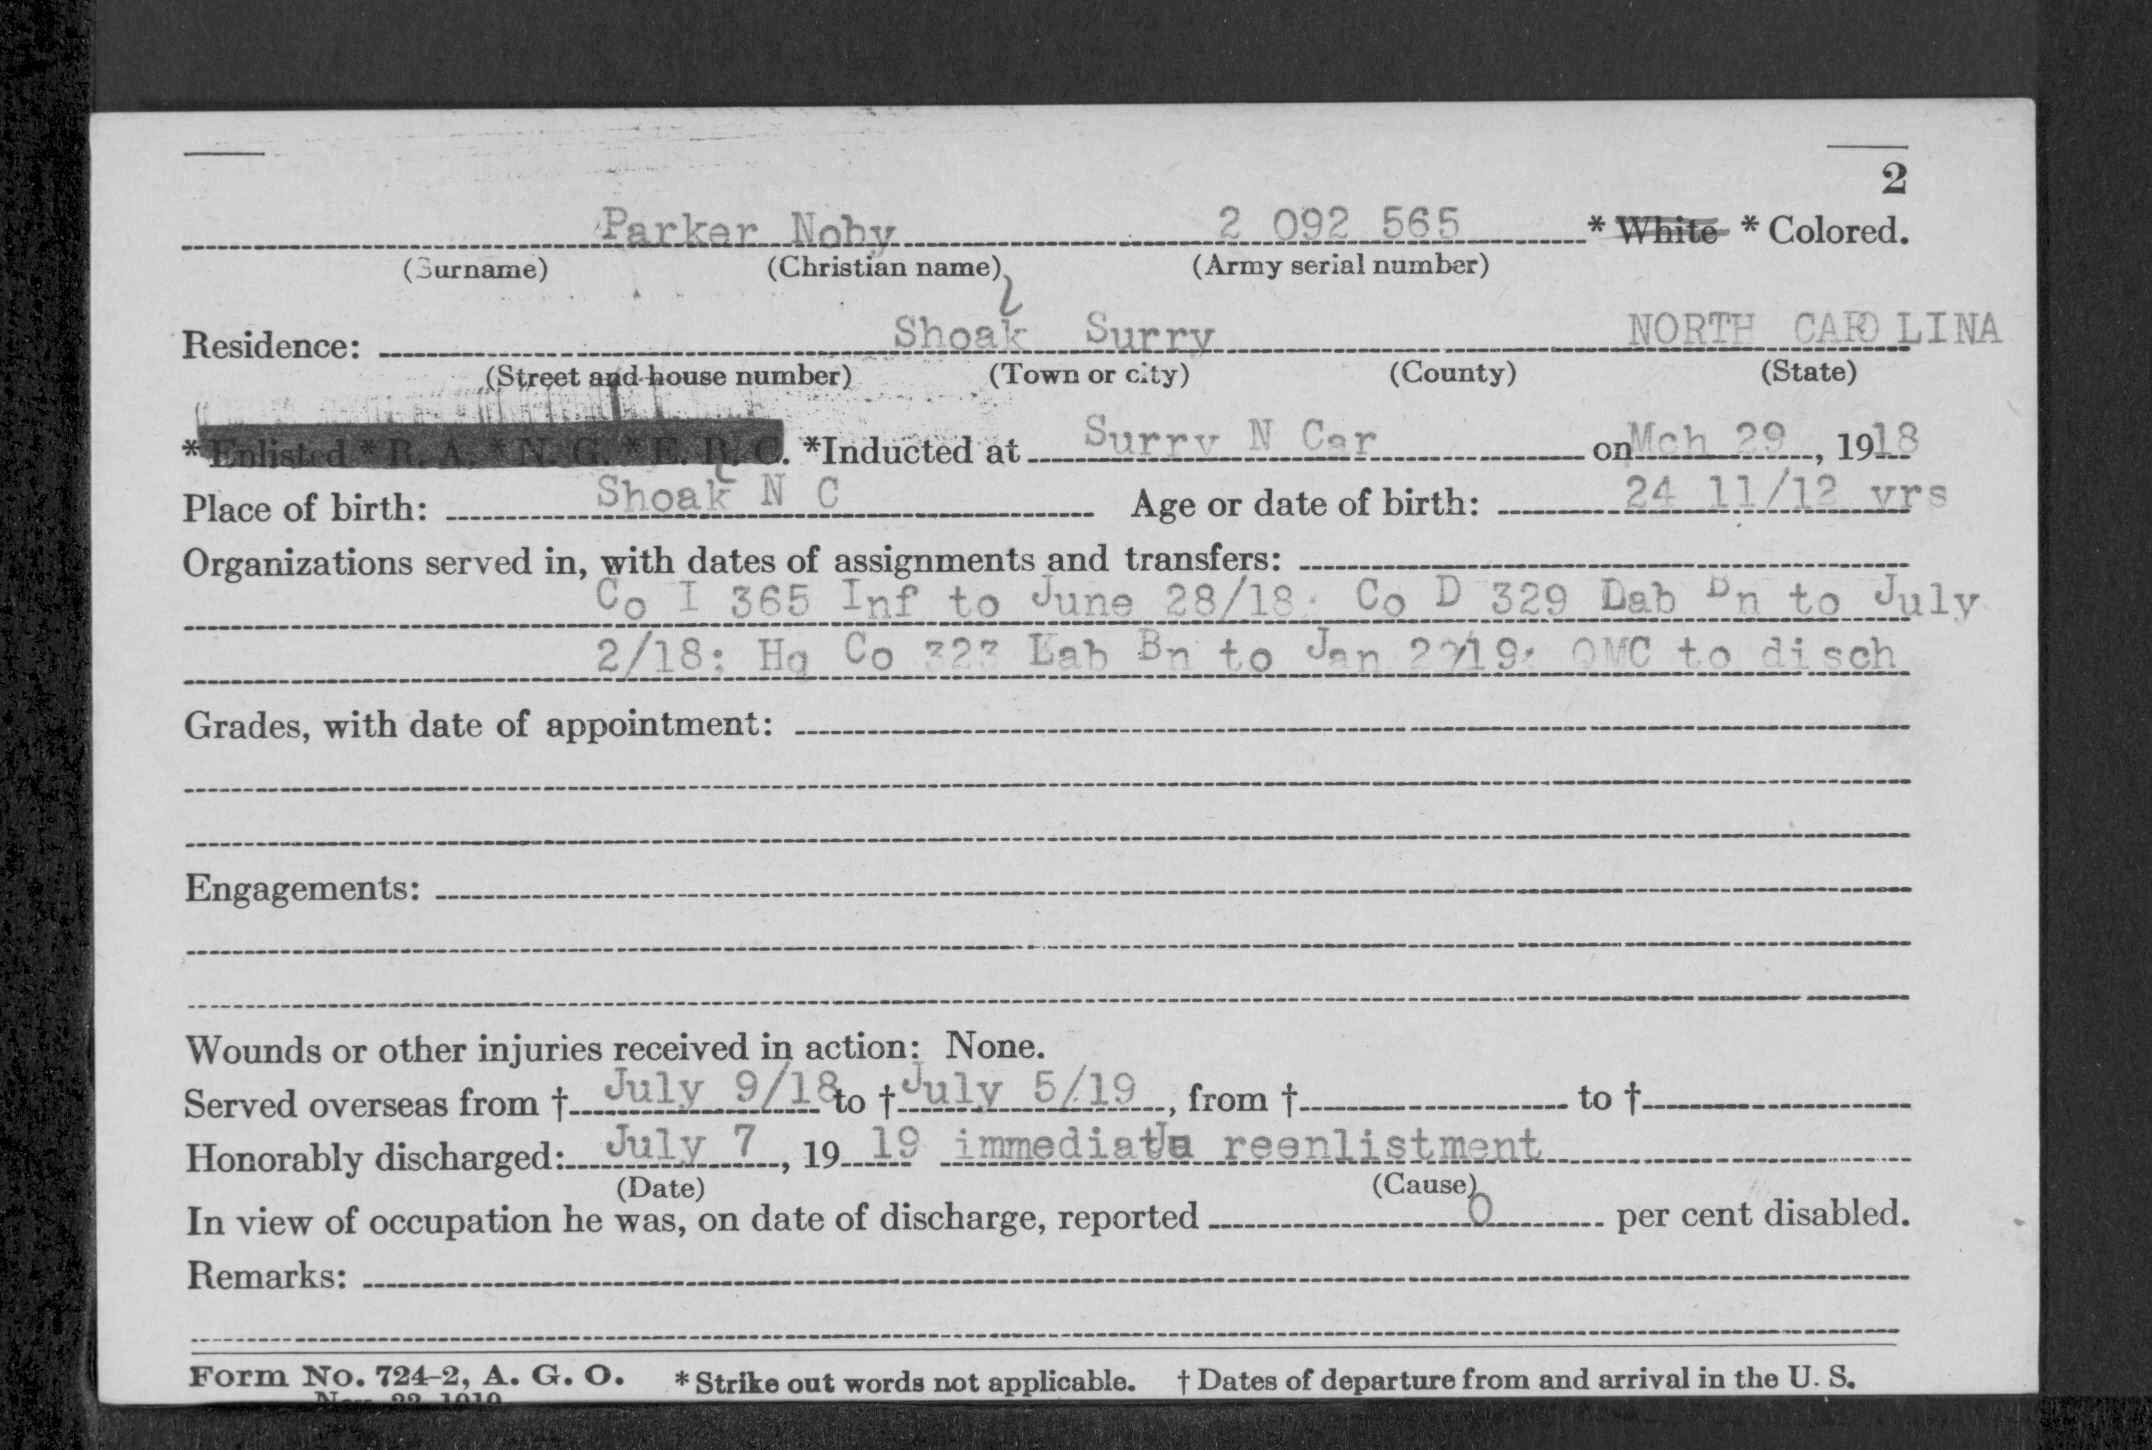 2
Parker Noby 2 092 565 * White * Colored.
(Surname) (Christian name) (Army serial number)
Residence: Shoak Surry NORTH CAROLINA
(Street and house number) (Town or city) (County) (State)
* Enlisted * R. A. * N. G. * E. R. C. *Inducted at Surry N Car on Mch 29, 1918
Place of birth: Shoak N C Age or date of birth: 24 11/12 yrs
Organizations served in, with dates of assignments and transfers:
Co I 365 Inf to June 28/18: Co D 329 Lab Bn to July
2/18; Hq Co 323 Lab Bn to Jan /19; QMC to disch
Grades, with date of appointment:
Engagements:
Wounds or other injuries received in action: None.
Served overseas from † July 9/18 to † July 5/19, from † to †
Honorably discharged: July 7, 19 19 immediate reenlistment
(Date) (Cause)
In view of occupation he was, on date of discharge, reported 0 per cent disabled.
Remarks:
Form No. 724-2, A. G. O. * Strike out words not applicable. † Dates of departure from and arrival in the U. S.